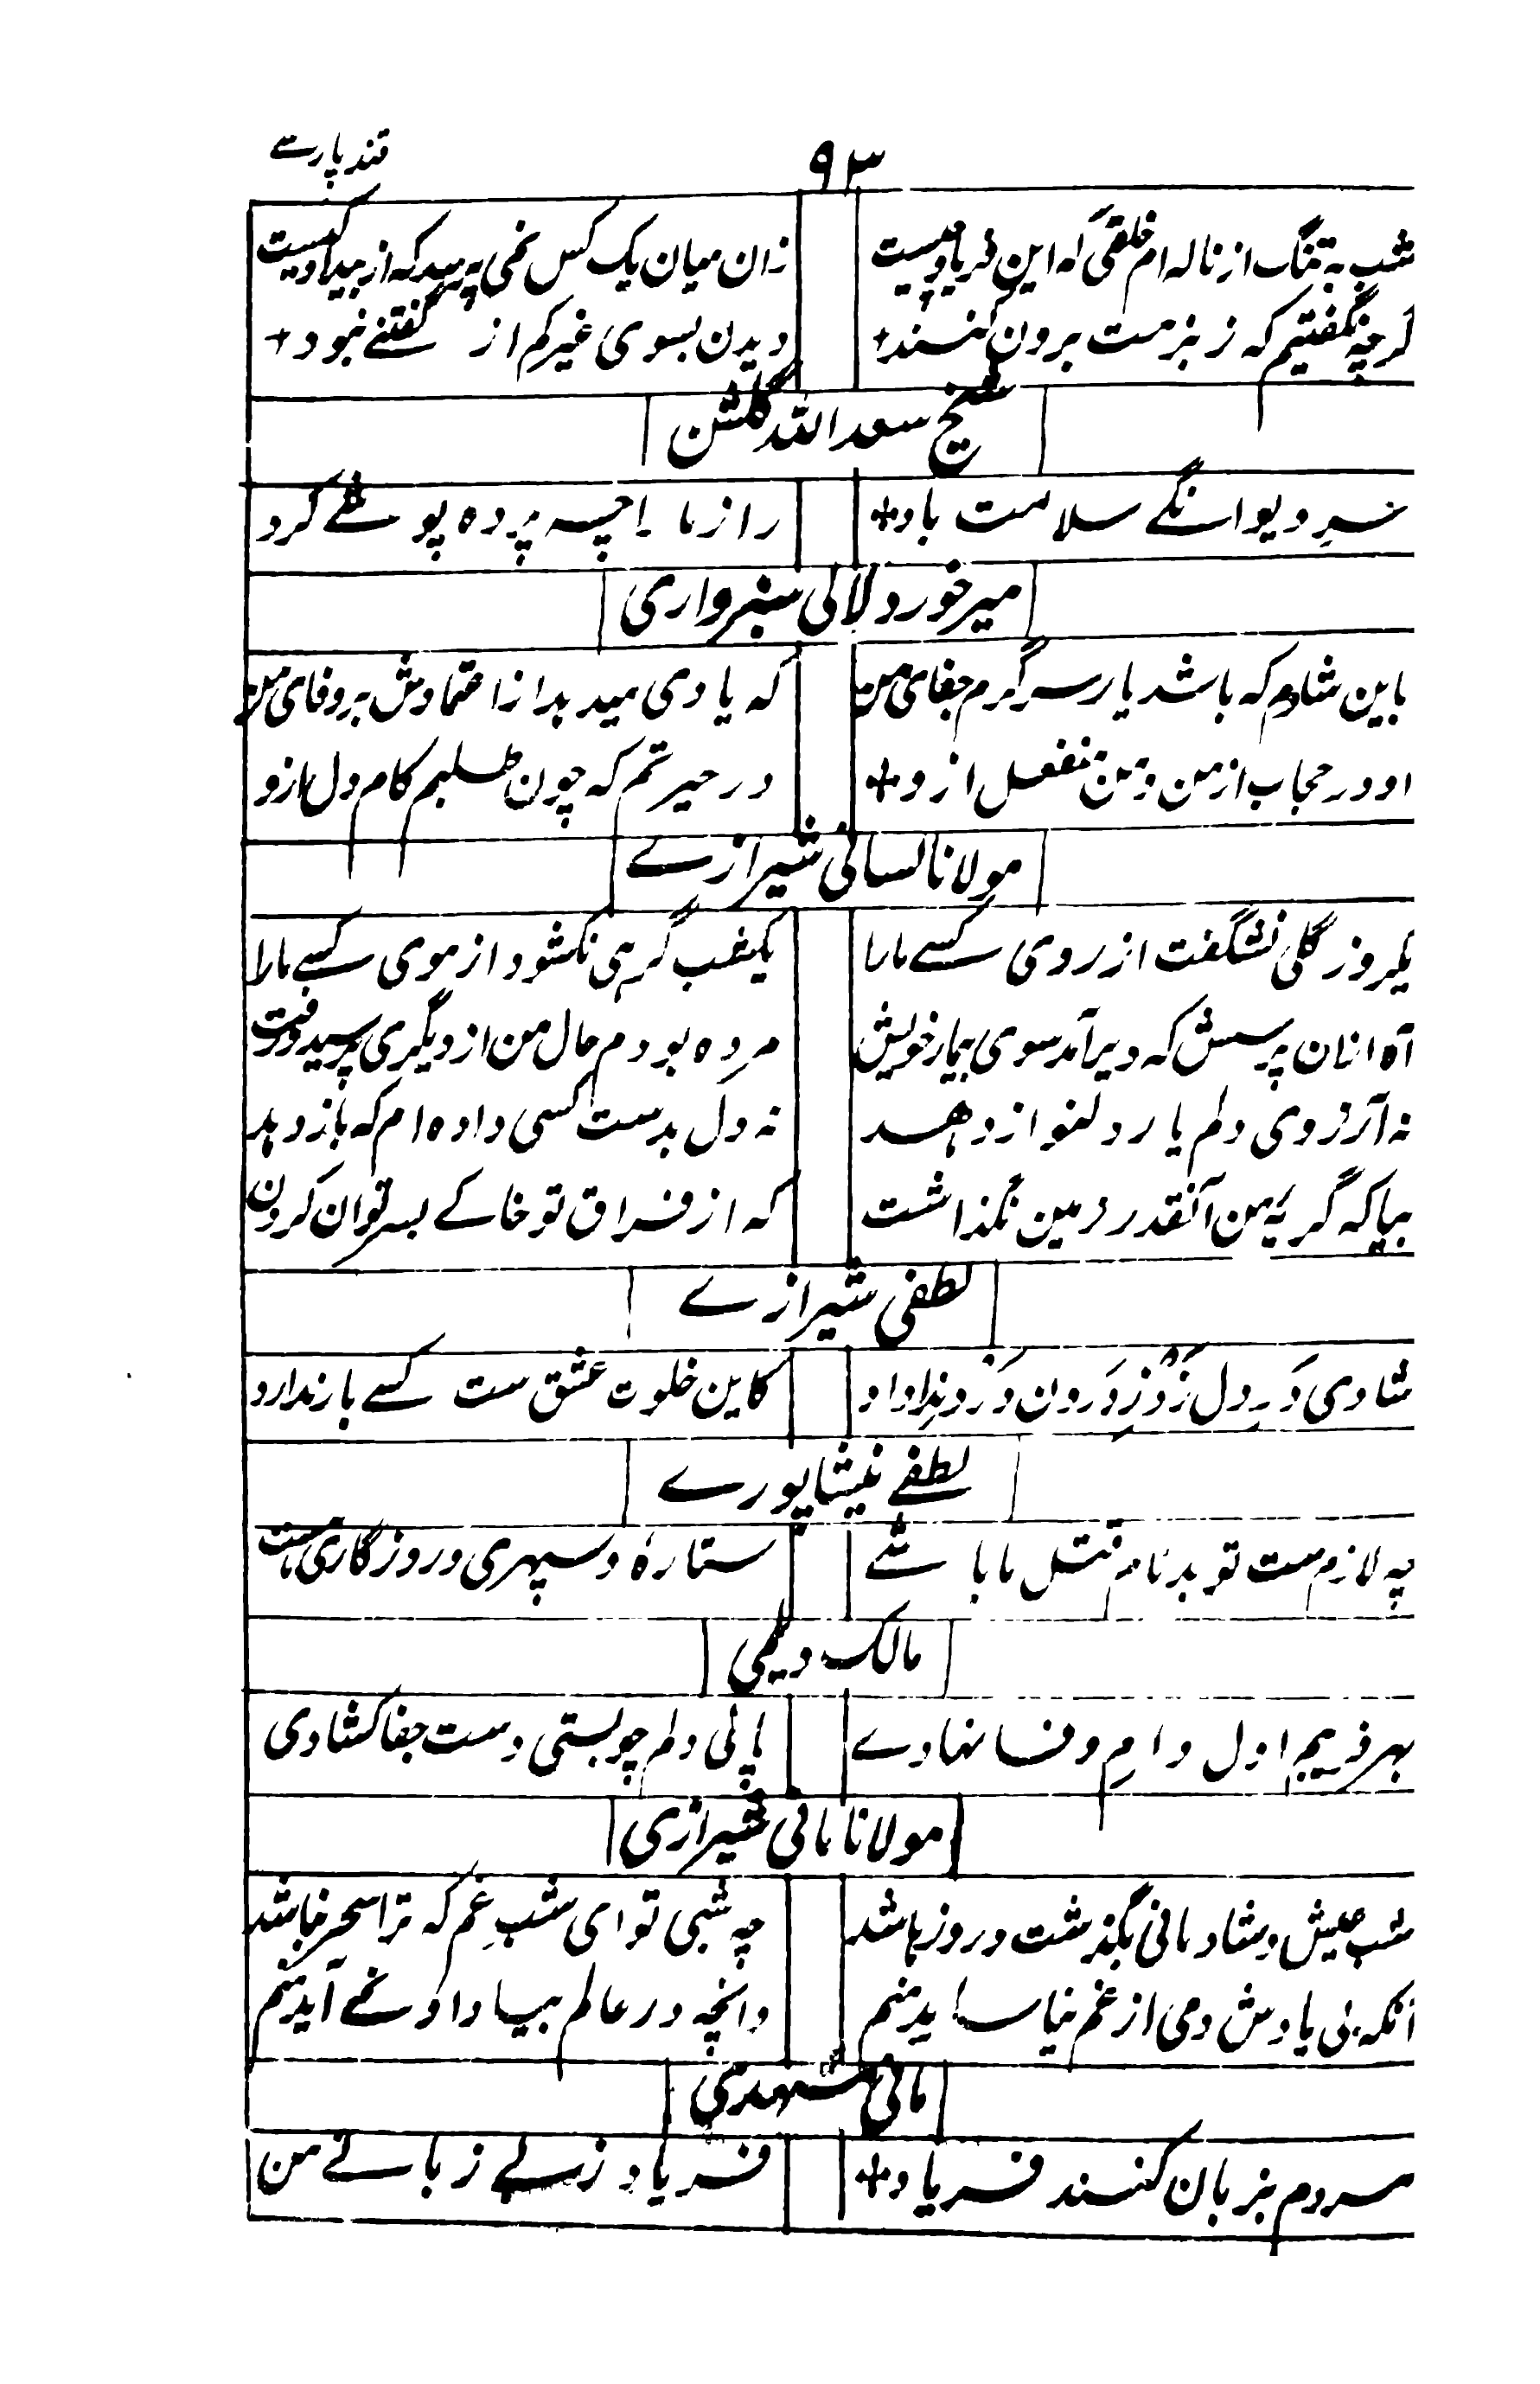 ۹۳
قند پارسے
شب به تنگ از ناله ام خلقی که این فریاد چیست
زان میان یک کس نمی پرسد که از بیداد کیست
گرچه نگفتیم که ز بزمت برون کنند+
دیدن بسوی غیر کم از گفتنے نبود+
شیخ سعد الله گلشن
سرِ دیوانگے سلامت باد+
راز ما را چسه پرده پوشے کرد
میر خورد لالی سبزواری
باین شادم که باشد یار سرگرم جفای من
که یادی میدهد از اعتمادش بر وفای من
او در حجاب از من و من منفعل ازو+
در حیرتم که چون طلبم کام دل ازو
مولانا لسانی شیرازے
یکروز گلی نشگفت از روی کسے مارا
یکشب گرهی نکشود از موی کسے مارا
آه ازان پرسش که دیر آمد سوی بیمار خویش
مرده بودم حال من از دیگری پرسید و رفت
نه آرزوی دلم یار دلنواز دهد
نه دل بدست کسی داده ام که باز دهد
بیا که گریه من آنقدر زمین نگذاشت
که از فراق تو خاکے بسر توان کردن
لطفی شیرازے
شادی دَرِ دل زد ز درون درد ندا داد
کاین خلوت عشق ست کسے بار ندارد
لطفے نیشاپورے
چه لازم ست تو بدنام قتل ما باشے
ستارهٔ و سپهری و روزگاری هست
مالک دیلمی
بهر فریبم اول دامِ وفا نهادے
پائی دلم چو بستی دست جفا کشادی
مولانا مانی شیرازی
شب عیش و شادمانی بگذشت و روز باشد
چه شبی تو ای شبِ غم که ترا سحر نباشد
آنکه بی یادش دمی از غم نیاساید منم
وانچه در عالم بیاد او نمے آید منم
مانی مشهدی
مردم بزبان کنند فریاد+
فریاد ز بے زبانے من